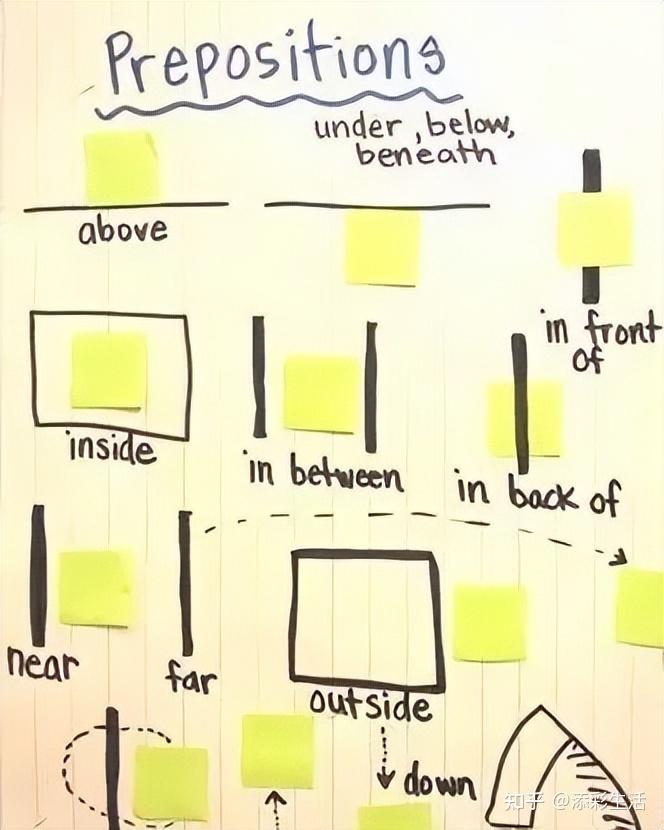 Prepositions
under, below,
beneath
above
in front
of
inside
in between
in back of
near
far
outside
down
知乎 @添彩生活